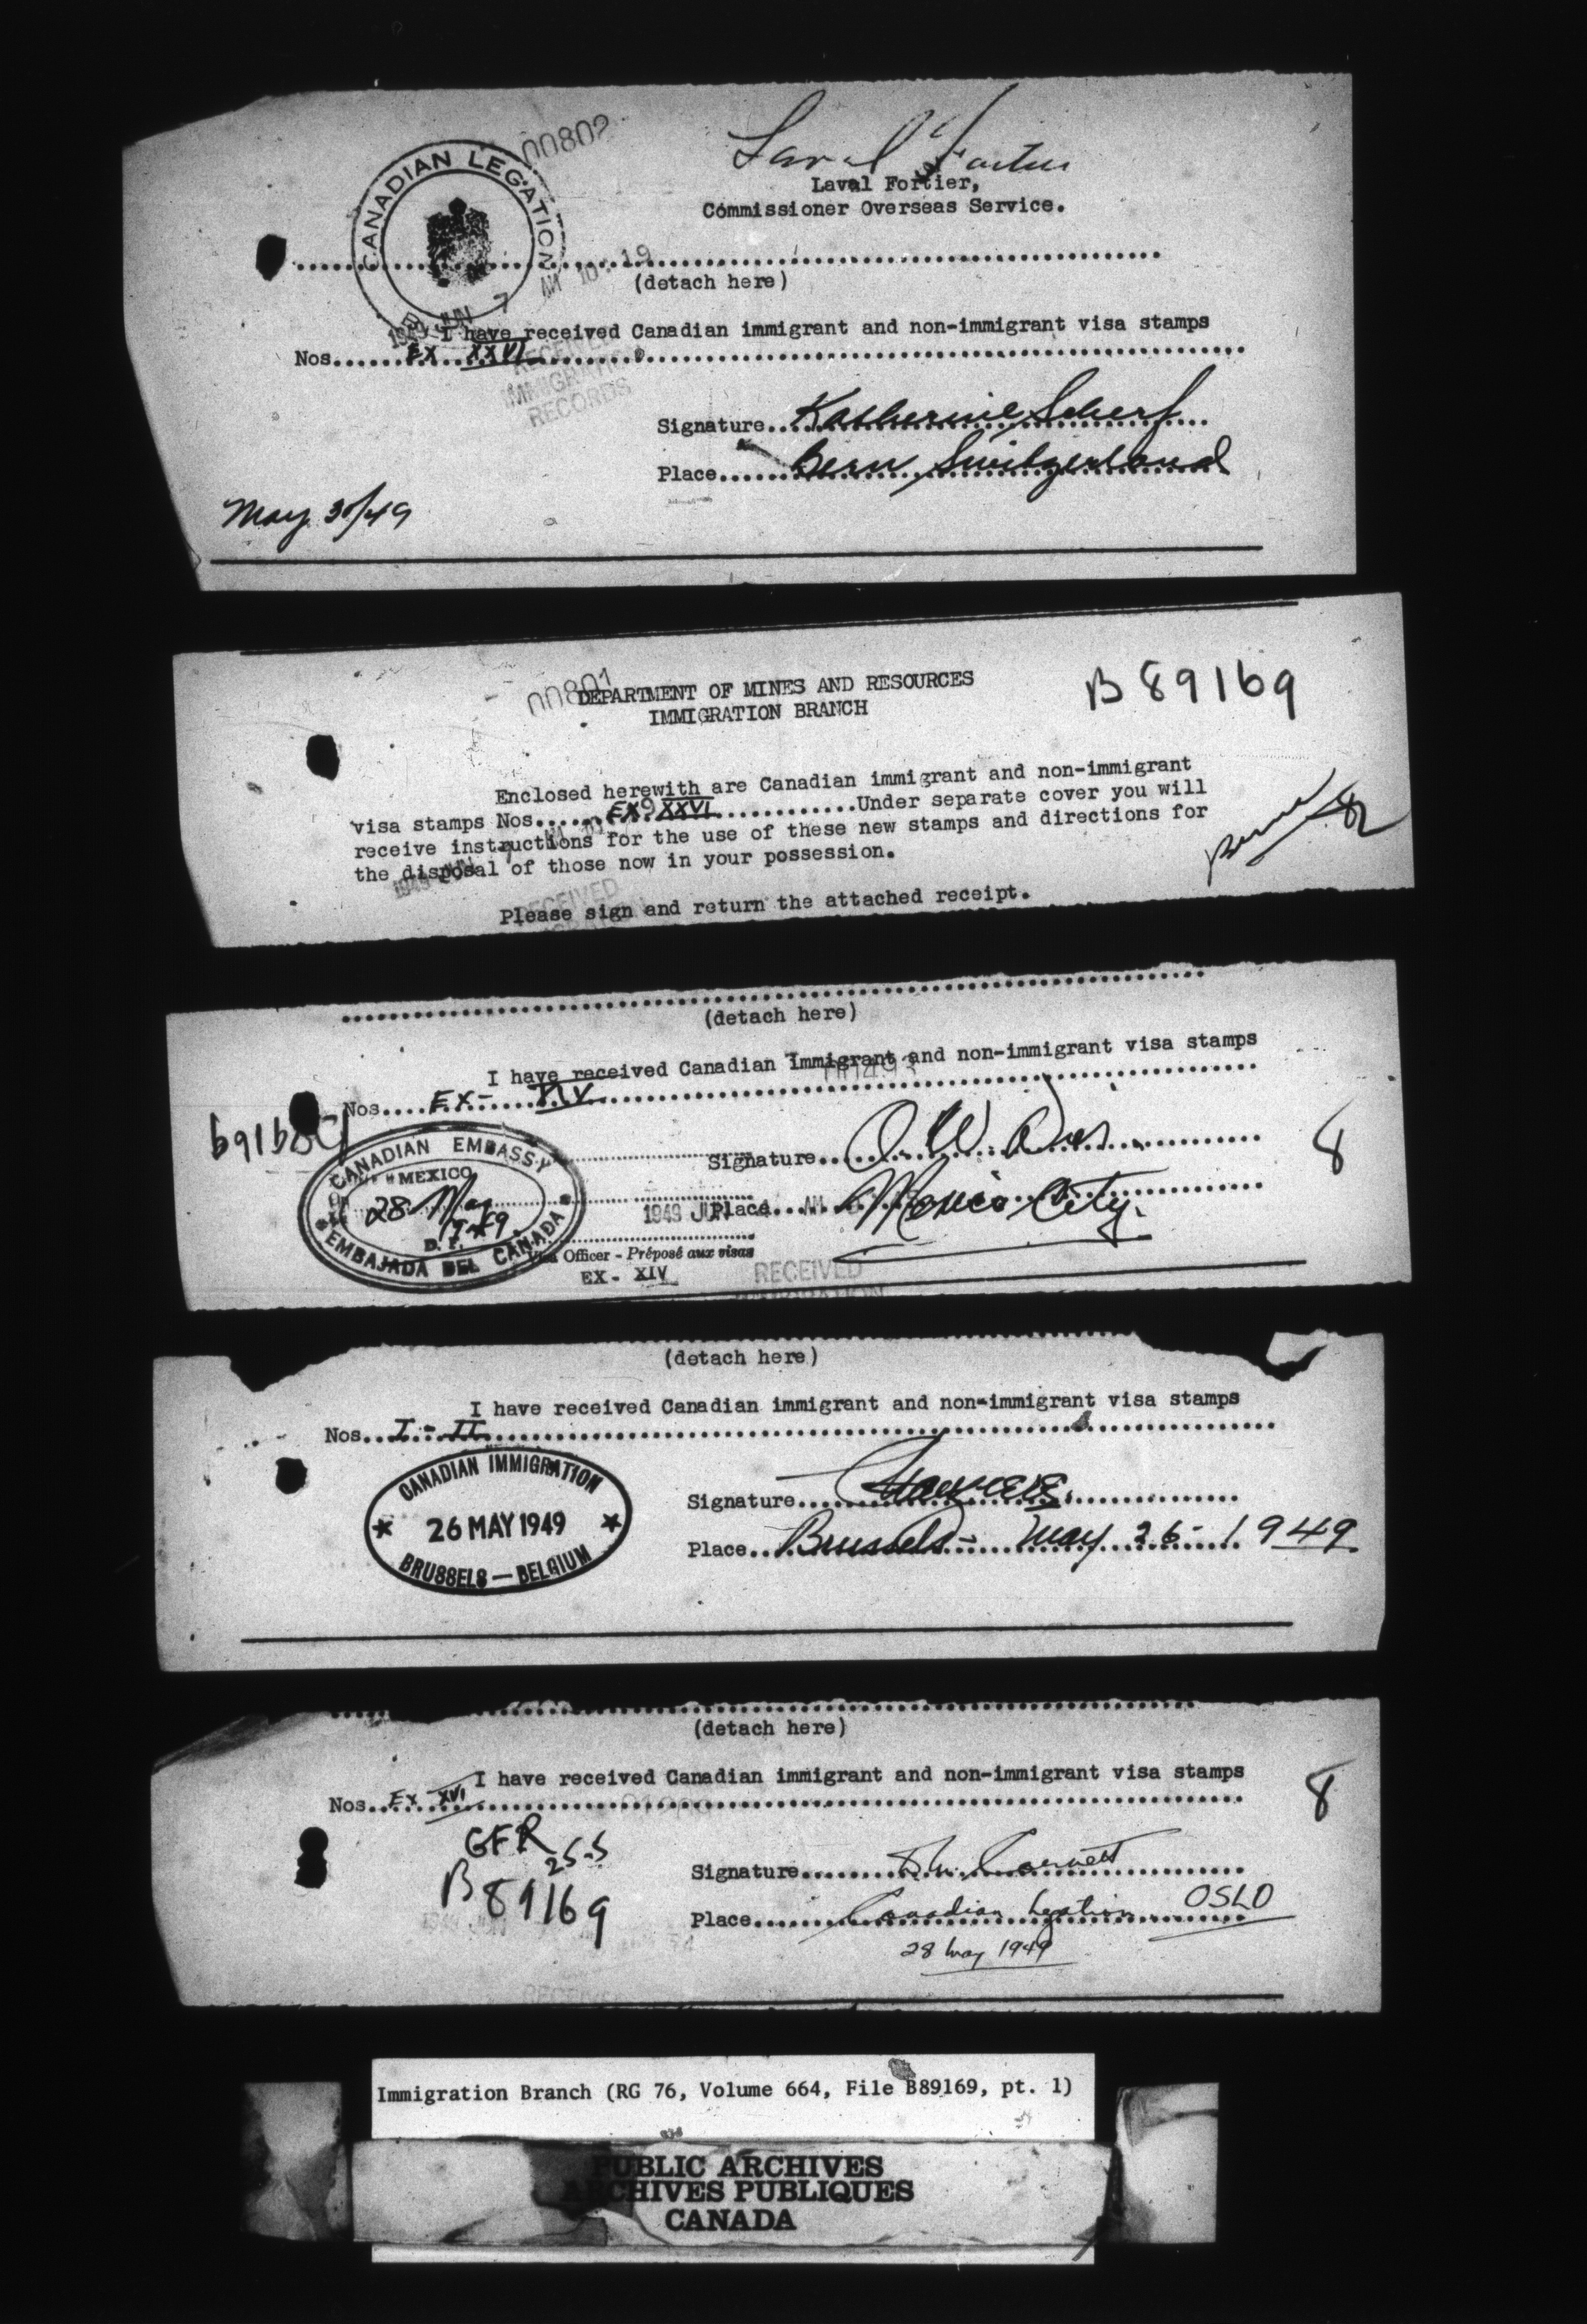 00802
Laval Fortier
Laval Fortier,
Commissioner Overseas Service.
CANADIAN LEGATION
(detach here)
1949 JUN 7 AM 10 19
I have received Canadian immigrant and non-immigrant visa stamps
Nos. EX XXVI
RECEIVED
IMMIGRATION
RECORDS
Signature Katherine Scherf
Place Bern, Switzerland
May 30/49
00801
DEPARTMENT OF MINES AND RESOURCES
IMMIGRATION BRANCH
B 89169
Enclosed herewith are Canadian immigrant and non-immigrant
visa stamps Nos. EX XXVI Under separate cover you will
receive instructions for the use of these new stamps and directions for
the disposal of those now in your possession.
1949 JUN 7
RECEIVED
Please sign and return the attached receipt.
8
(detach here)
I have received Canadian Immigrant and non-immigrant visa stamps
Nos. EX- XIV
B89169
CANADIAN EMBASSY
MEXICO
28 May
1949
D. F.
EMBAJADA DEL CANADA
Signature
8
1949 JUN AM
Place Mexico City.
Visa Officer - Préposé aux visas
EX - XIV
RECEIVED
(detach here)
I have received Canadian immigrant and non-immigrant visa stamps
Nos. I - II
CANADIAN IMMIGRATION
26 MAY 1949
BRUSSELS — BELGIUM
Signature
Place Brussels - May 26 - 1949
(detach here)
I have received Canadian immigrant and non-immigrant visa stamps
Nos. Ex XVI
8
GFR
25-5
B 89169
Signature
Place Canadian Legation OSLO
28 May 1949
RECEIVED
Immigration Branch (RG 76, Volume 664, File B89169, pt. 1)
PUBLIC ARCHIVES
ARCHIVES PUBLIQUES
CANADA